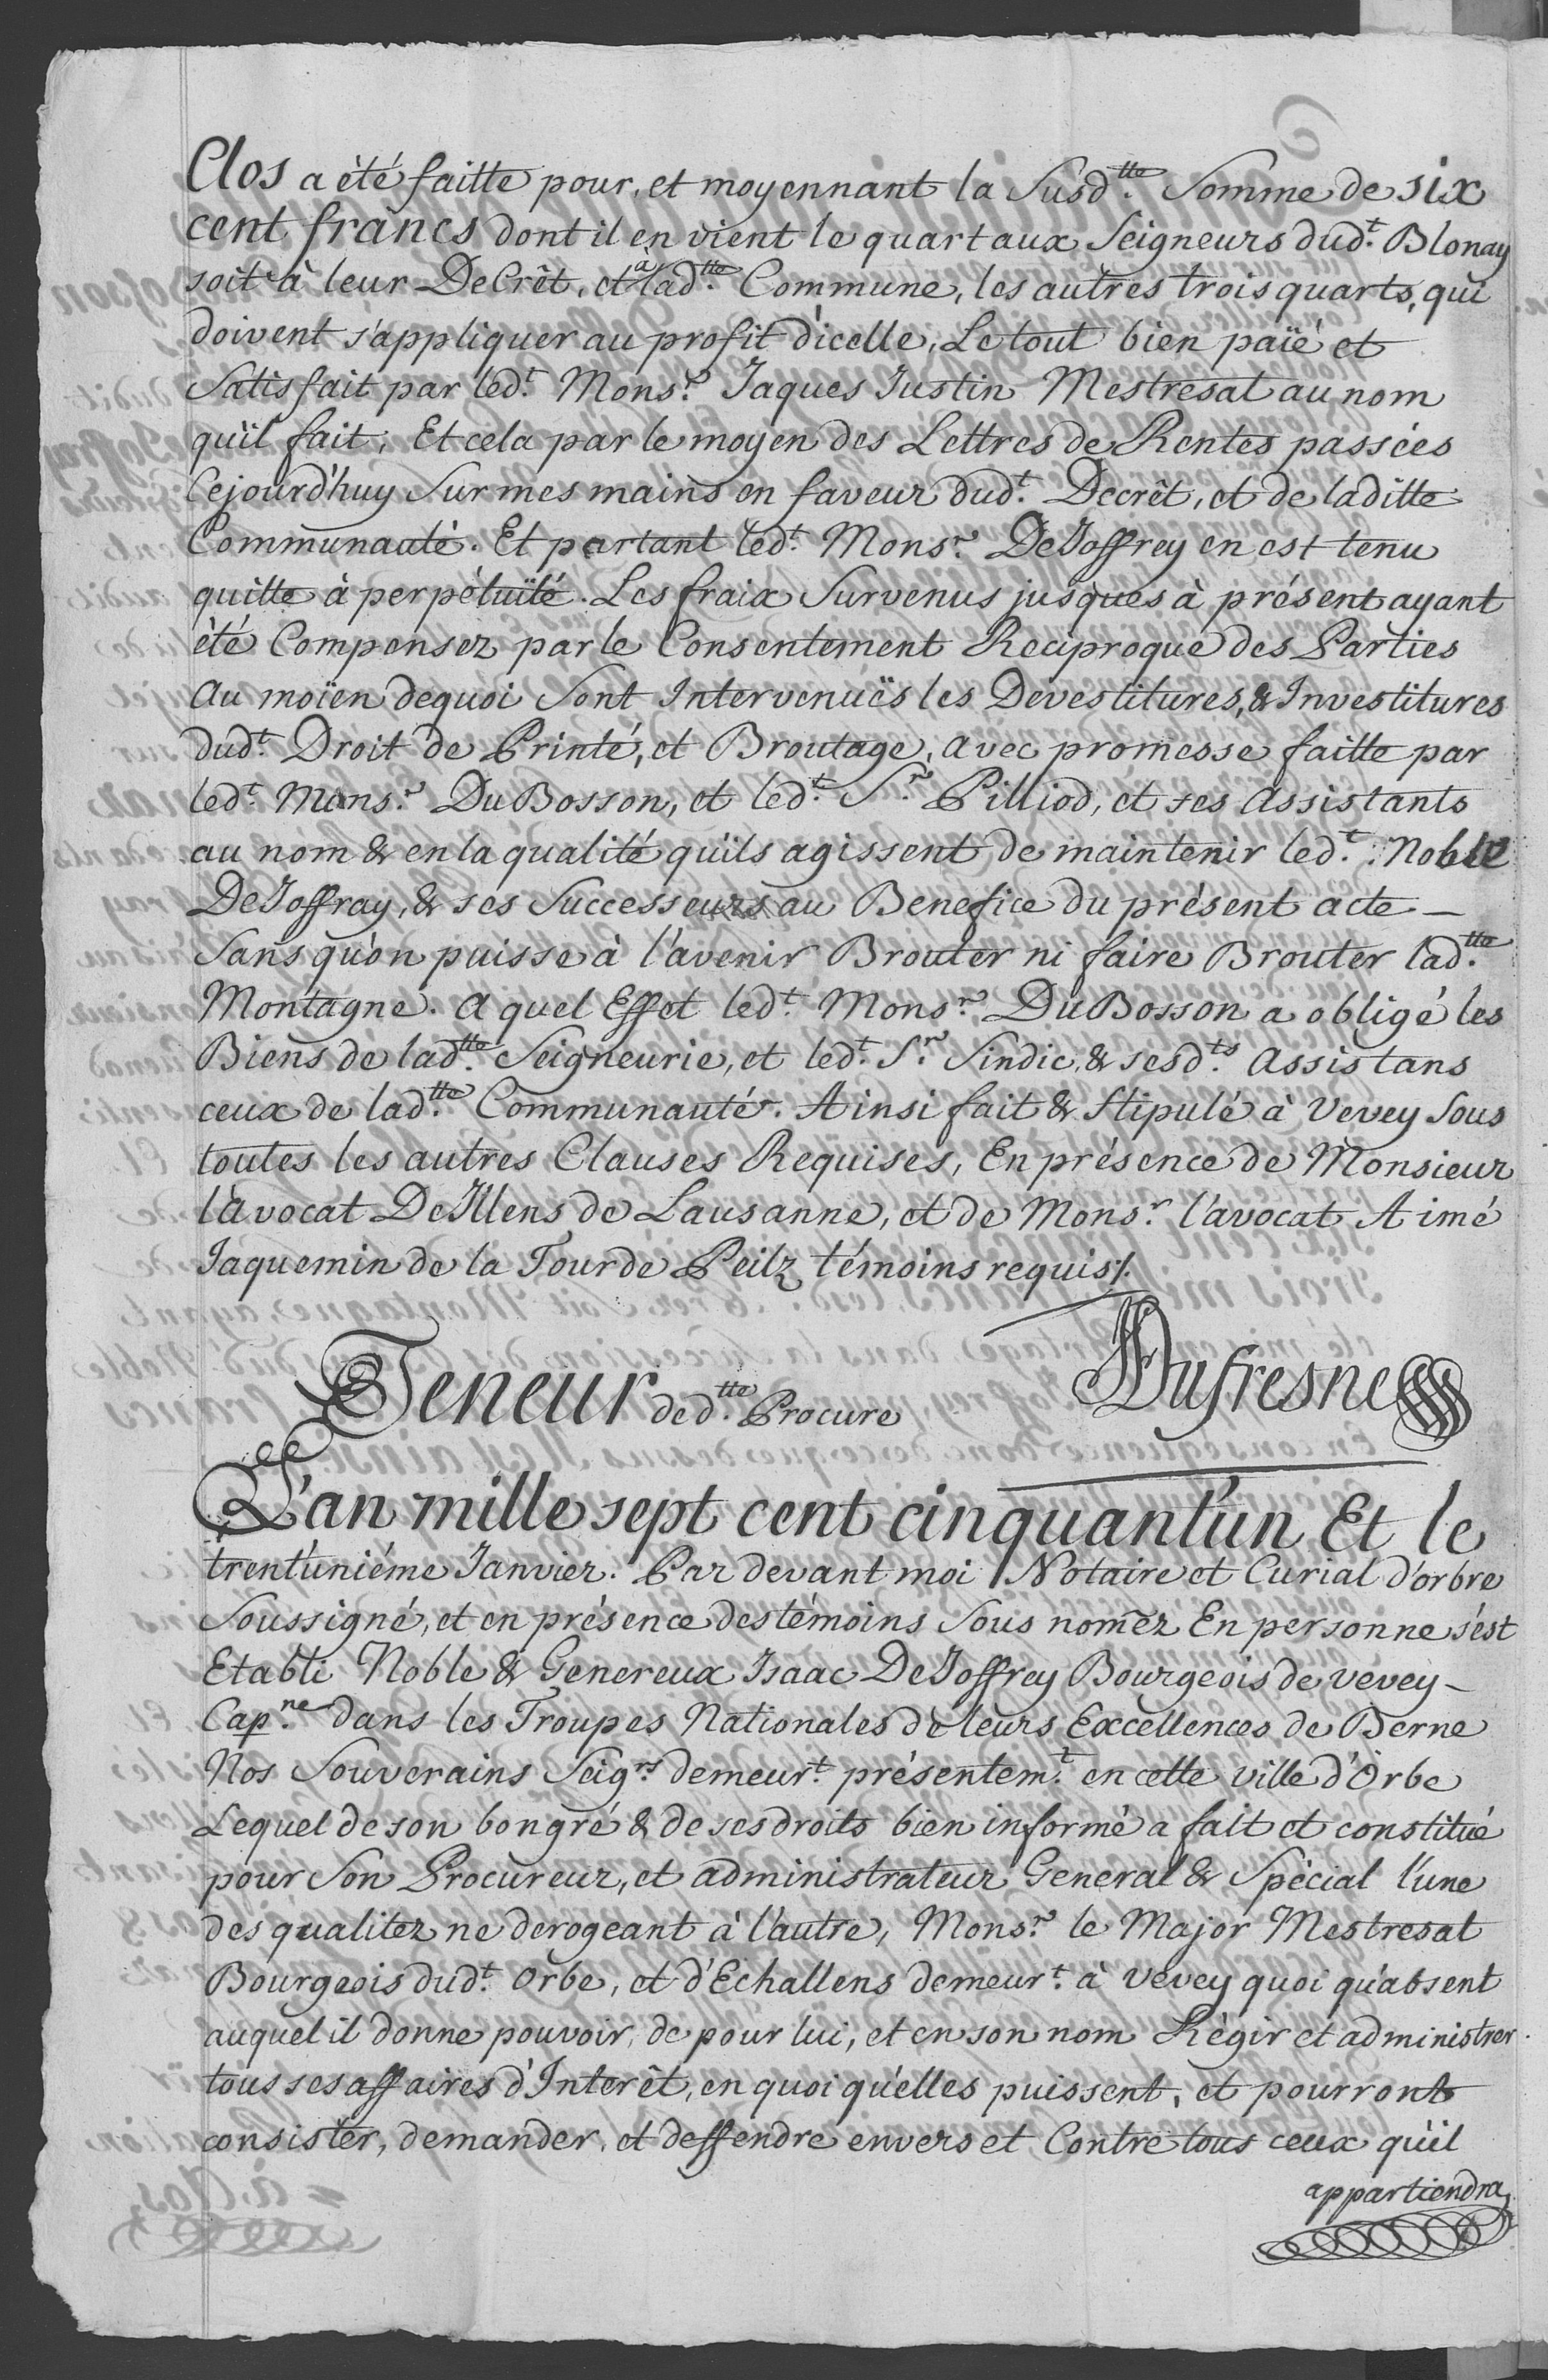 Clos a été faitte pour, et moyennant la Susd.tte Somme de six
cent francs dont il en vient le quart aux Seigneurs dud.t Blonay
soit à leur DeCrêt, et à lad.tte Commune, les autres trois quarts, qui
doivent s'appliquer au profit d'icelle, Le tout bien païé et
Satisfait par led.t Mons.r Jaques Justin Mestresat au nom
qu'il fait, Et cela par le moyen des Lettres de Rentes passées
Cejourd'huy Sur mes mains en faveur dud.t Decrêt, et de laditte
Communauté. Et partant led.t Mons.r DeJoffrey en est tenu
quitte à perpétuïté. Les fraix Survenus jusques à présent ayant
été Compensez par le Consentement Reciproque des Parties
Au moïen dequoi Sont Intervenuës les Devestitures, & Investitures
dud.t Droit de Printé, et Broutage, avec promesse faitte par
led.t Mons.r DuBosson, et led.t S.r Pilliod, et ses Assistants
au nom & en la qualité qu'ils agissent de maintenir led.t Noble
DeJoffray, & ses Successeurs au Benefice du présent acte –
Sans qu'on puisse à l'avenir Brouter ni faire Brouter lad.tte
Montagne. A quel Effet led.t Mons.r DuBosson a obligé les
Biens de lad.tte Seigneurie, et led.t S.r Sindic, & sesd.ts Assistans
ceux de lad.tte Communauté. Ainsi fait & Stipulé à Vevey Sous
toutes les autres Clauses Requises, En présence de Monsieur
l'Avocat DeJllens de Lausanne, et de Mons.r l'avocat Aimé
Jaquemin de la Tour de Peilz témoins requis/.
Dufresne
Teneur ded.tte Procure
L'an mille sept cent cinquant'un Et le
trent'uniéme Janvier. Par devant moi Notaire et Curial d'orbe
Soussigné, et en présence des témoins Sous nomez En personne s'est
Etabli Noble & Genereux Isaac DeJoffrey Bourgeois de vevey –
Cap.ne dans les Troupes Nationales de leurs Excellences de Berne
Nos Souverains Seig.rs demeur.t présentem.t en cette ville d'Orbe
Lequel de son bon gré & de ses droits bien informé a fait et constitué
pour Son Procureur, et administrateur General & Spécial l'une
des qualitez ne derogeant à l'autre, Mons.r le Major Mestresat
Bourgeois dud.t Orbe, et d'Echallens demeur.t à vevey quoi qu'absent
auquel il donne pouvoir, de pour lui, et en son nom Régir et administrer
tous ses affaires d'Interêt, en quoi qu'elles puissent, et pourront
consister, demander, et deffendre envers et Contre tous ceux qu'il
appartiendra,